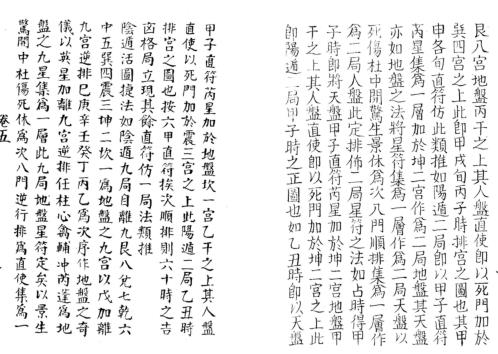 艮八宮地盤庚干之上其人盤直使即以死門加於
巽四宮之上此即甲戌旬丙子時排宮之圖也其甲
申各旬直符仿此類推如陽遁二局即以甲子直符
芮星集為一層加於坤二宮作為二局地盤其天盤
亦如地盤之法將星符集為一層作為二局天盤以
死傷杜中開驚生景休為次八門順排集為一層作
為二局人盤此定排佈二局星符之法如占時得甲
子時即將天盤甲子直符芮星加於坤二宮地盤甲
干之上其人盤直使即以死門加於坤二宮之上此
即陽遁二局甲子時之正圖也如乙丑時即以天盤
甲子直符芮星加於地盤坎一宮乙干之上其人盤
直使以死門加於震三宮之上此陽遁二局乙丑時
排宮之圖也按六甲直符挨次順排則六十時之吉
凶格局立現其餘直符仿一局法類推
陰遁活圖捷法如陰遁九局自離九艮八兌七乾六
中五巽四震三坤二坎一為地盤之九宮以戊加離
九宮逆排己庚辛壬癸丁丙乙為次序作地盤之奇
儀以英星加離九宮逆排任柱心禽輔冲芮蓬為地
盤之九星集為一層此九局地盤星符定矣以景生
驚開中杜傷死休為次八門逆行排為直使集為一
卷五